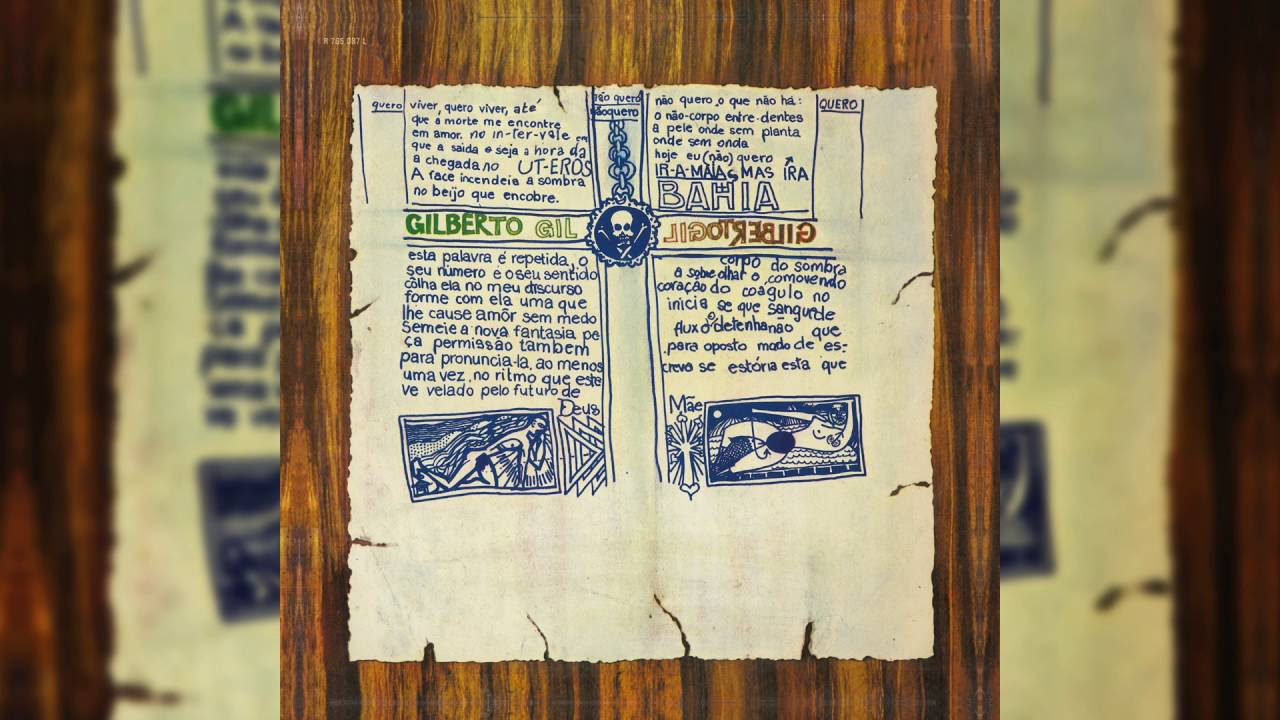 R 765.087 L
quero
viver, quero viver, até
que a morte me encontre
em amor. no in-ter-vale em
que a saída e seja a hora da
a chegada no UT-EROS
A face incendeia a sombra
no beijo que encobre.
não quero
nãoquero
não quero o que não há:
o não-corpo entre-dentes
a pele onde sem planta
onde sem onda
hoje eu (não) quero
IR-A-MAIAS MAS IRA
BAHIA
QUERO
GILBERTO GIL
GILBERTOGIL
esta palavra é repetida, o
seu número é o seu sentido
côlha ela no meu discurso
forme com ela uma que
lhe cause amôr sem medo
Semeie a nova fantasia pe
ça permissão também
para pronuncia-la, ao menos
uma vez, no ritmo que este
ve velado pelo futuro de
Deus
corpo do sombra
a sobre olhar o comovendo
coração do coágulo no
inicia se que sangue de
fluxo detenha não que
para oposto modo de es-
creva se estória esta que
Mãe